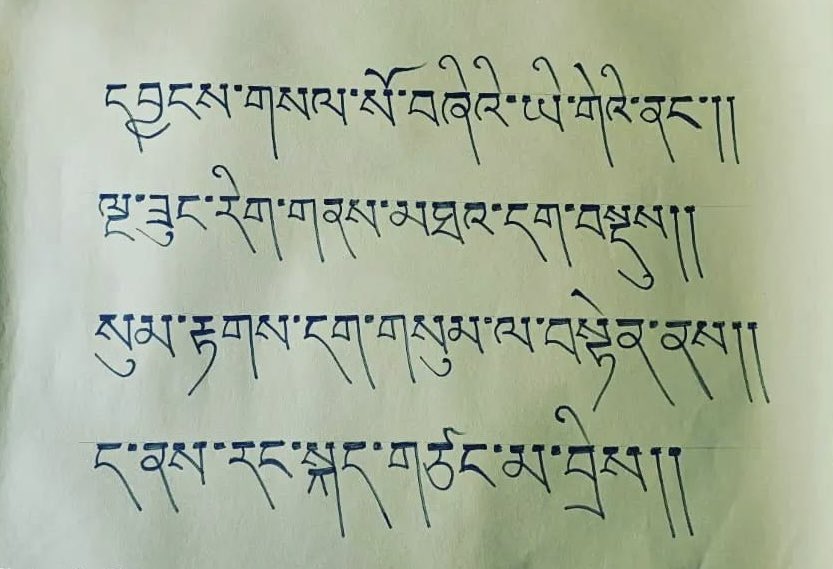 དབྱངས་གསལ་སོ་བཞིའི་ཡི་གེའི་ནང་།།
རེག་གནས་མཐའ་དག་བསྡུས།།
སུམ་རྟགས་དག་གསུམ་ལ་བསྟེན་ནས།།
ད་ནས་རང་སྐད་གཙང་མ་བྲིས།།